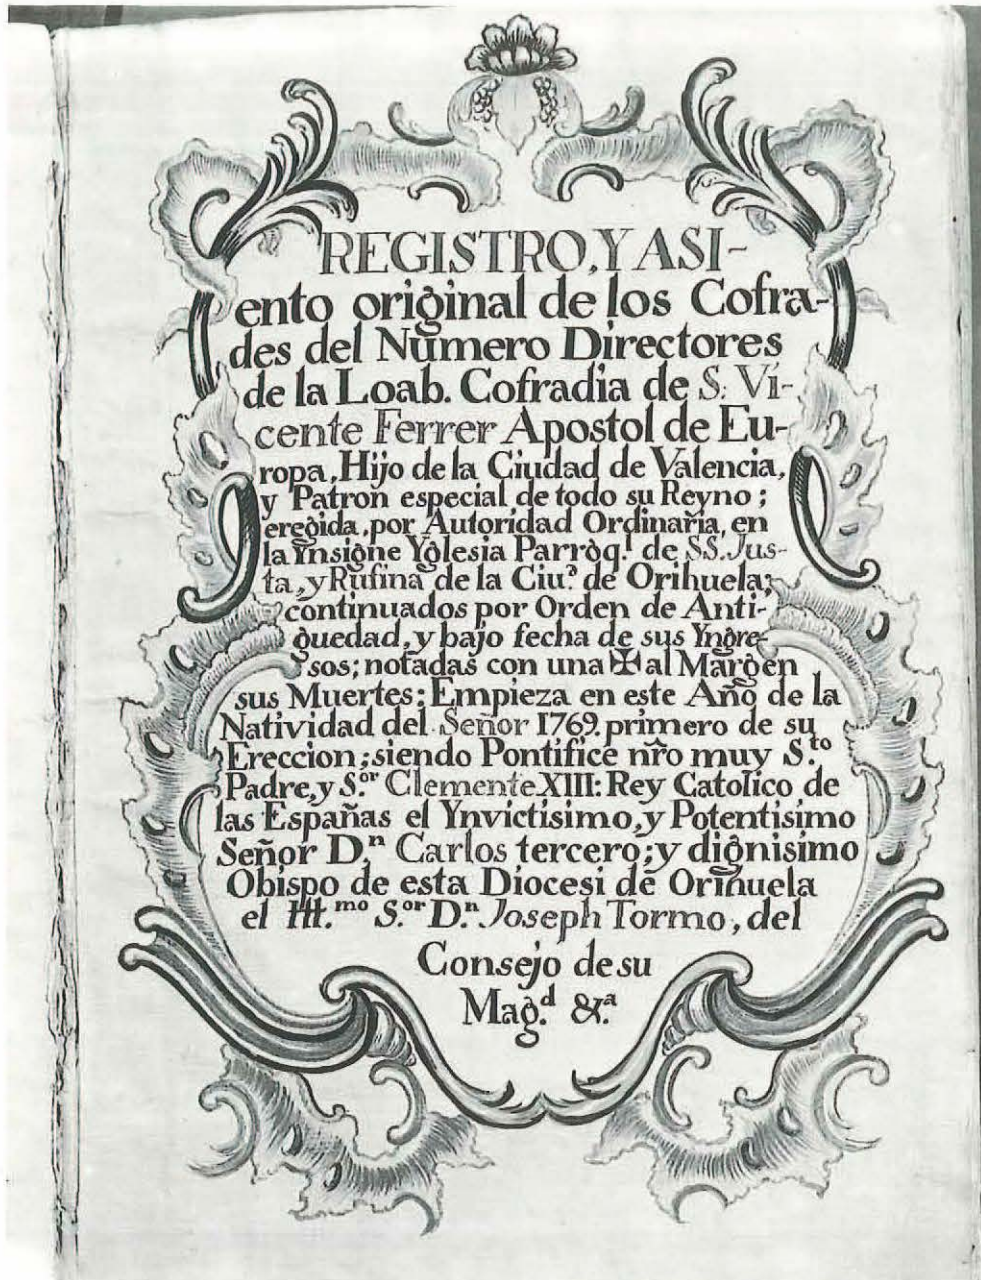 REGISTRO, Y ASI-
ento original de los Cofra-
des del Número Directores
de la Loab. Cofradia de S. Vi-
cente Ferrer Apostol de Eu-
ropa, Hijo de la Ciudad de Valencia,
y Patron especial de todo su Reyno;
eregida, por Autoridad Ordinaria, en
la Ynsigne Yglesia Parròq.l de SS. Jus-
ta, y Rufina de la Ciu.d de Orihuela;
continuados por Orden de Anti-
guedad, y bajo fecha de sus Yngre-
sos; notadas con una ✠ al Margen
sus Muertes: Empieza en este Año de la
Natividad del Señor 1769. primero de su
Ereccion; siendo Pontifice nr̃o muy S.to
Padre, y S.or Clemente XIII: Rey Catolico de
las Españas el Ynvictisimo, y Potentisimo
Señor D.n Carlos tercero; y dignisimo
Obispo de esta Diocesi de Orihuela
el Ill.mo S.or D.n Joseph Tormo, del
Consejo de su
Mag.d &.a